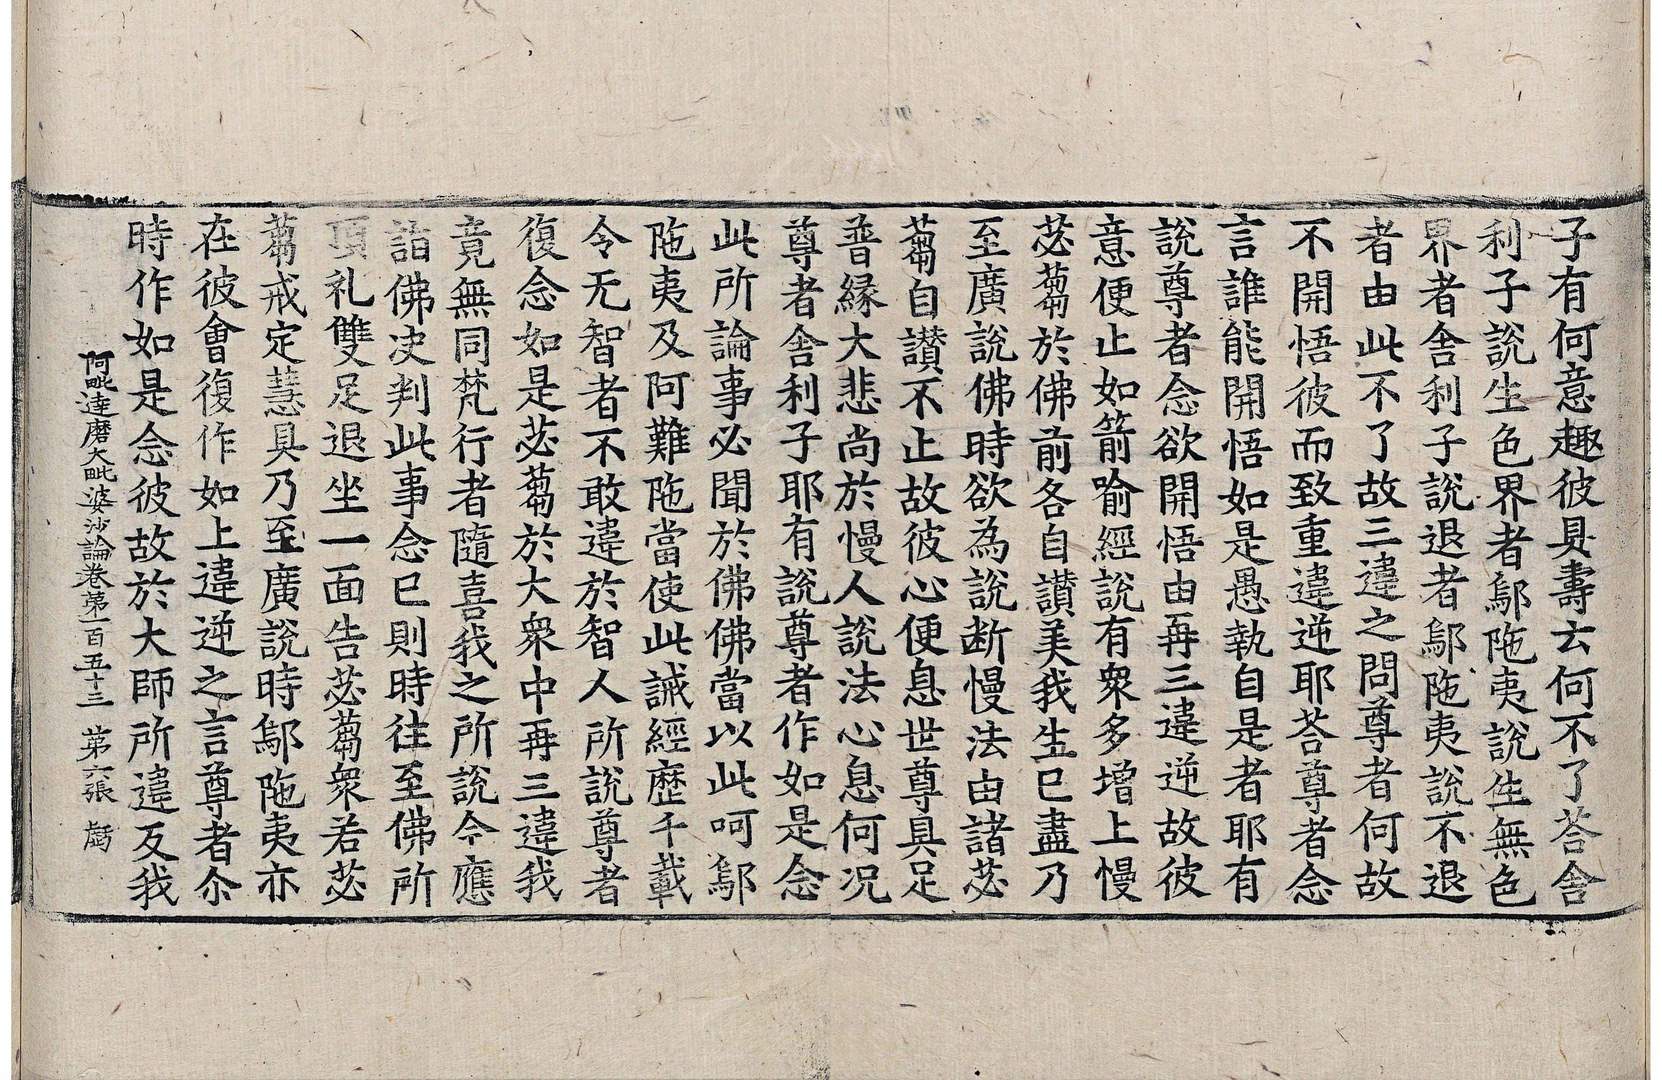 子有何意趣彼具壽云何不了荅舍
利子說生色界者鄔陁夷說生無色
界者舍利子說退者鄔陁夷說不退
者由此不了故三違之問尊者何故
不開悟彼而致重違逆耶荅尊者念
言誰能開悟如是愚執自是者耶有
說尊者念欲開悟由再三違逆故彼
意便止如箭喻經說有衆多增上慢
苾蒭於佛前各自讃美我生已盡乃
至廣說佛時欲為說断慢法由諸苾
蒭自讃不止故彼心便息世尊具足
普縁大悲尚於慢人說法心息何况
尊者舍利子耶有說尊者作如是念
此所論事必聞於佛佛當以此呵鄔
陁夷及阿難陁當使此誡經歷千載
令无智者不敢違於智人所說尊者
復念如是苾蒭於大衆中再三違我
竟無同梵行者隨喜我之所說今應
詣佛决判此事念已則時往至佛所
頂礼雙足退坐一面告苾蒭衆若苾
蒭戒定慧具乃至廣說時鄔陁夷亦
在彼會復作如上違逆之言尊者尒
時作如是念彼故於大師所違反我
阿毗達磨大毗婆沙論卷第一百五十三 第六張